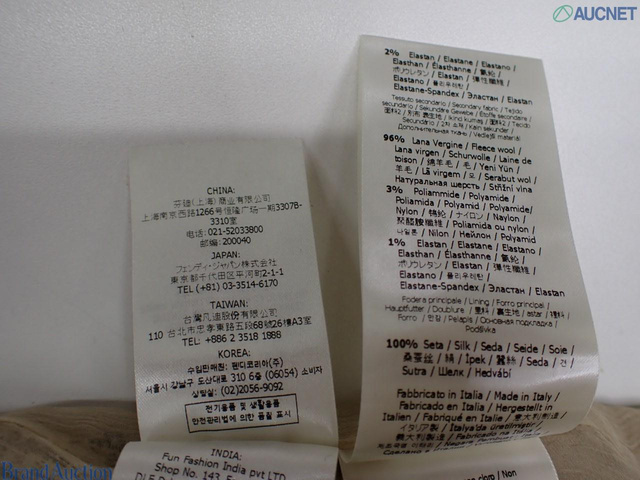 AUCNET
CHINA:
芬迪(上海)商业有限公司
上海南京西路1266号恒隆广场一期3307B-
3310室
电话: 021-52033800
邮编: 200040
JAPAN:
フェンディ・ジャパン株式会社
東京都千代田区平河町2-1-1
TEL (+81) 03-3514-6170
TAIWAN:
台灣凡迪股份有限公司
110 台北市忠孝東路五段68號26樓A3室
TEL: +886 2 3518 1888
KOREA:
수입판매원: 펜디코리아(주)
서울시 강남구 도산대로 310 6층 (06054) 소비자
상담실: (02)2056-9092
전기용품 및 생활용품
안전관리법에 의한 품질 표시
INDIA:
Fun Fashion India pvt LTD
Shop No. 143
2% Elastan / Elastane / Elastano /
Elasthan / Élasthanne / 氨纶 /
ポリウレタン / Elastan / 彈性纖維 /
Elastano / 폴리우레탄 /
Elastane-Spandex / Эластан / Elastan
Tessuto secondario / Secondary fabric / Tejido
secundario / Sekundäre Gewebe / Étoffe secondaire /
面料2 / 別布 裏生地 / İkinci kumaş / 面料2 / Tecido
Secundário / 2차 소재 / Kain sekunder /
Дополнительная ткань / Vedlejší materiál
96% Lana Vergine / Fleece wool /
Lana virgen / Schurwolle / Laine de
toison / 绵羊毛 / 毛 / Yeni Yün /
羊毛 / Lã virgem / 모 / Serabut wol /
Натуральная шерсть / Střižní vlna
3% Poliammide / Polyamide /
Poliamida / Polyamid / Polyamide /
Nylon / 锦纶 / ナイロン / Naylon /
聚醯胺纖維 / Poliamida ou nylon /
나일론 / Nilon / Нейлон / Polyamid
1% Elastan / Elastane / Elastano /
Elasthan / Élasthanne / 氨纶 /
ポリウレタン / Elastan / 彈性纖維 /
Elastano / 폴리우레탄 /
Elastane-Spandex / Эластан / Elastan
Fodera principale / Lining / Forro principal /
Hauptfutter / Doublure / 里料 / 裏生地 / astar / 裡料 /
Forro / 안감 / Pelapis / Основная подкладка /
Podšívka
100% Seta / Silk / Seda / Seide / Soie /
桑蚕丝 / 絹 / İpek / 蠶絲 / Seda / 견 /
Sutra / Шелк / Hedvábí
Fabbricato in Italia / Made in Italy /
Fabricado en Italia / Hergestellt in
Italien / Fabriqué en Italie / 意大利制造 /
イタリア製 / Italya'da üretilmiştir /
義大利製造 / Fabricado na Itália /
Brand Auction